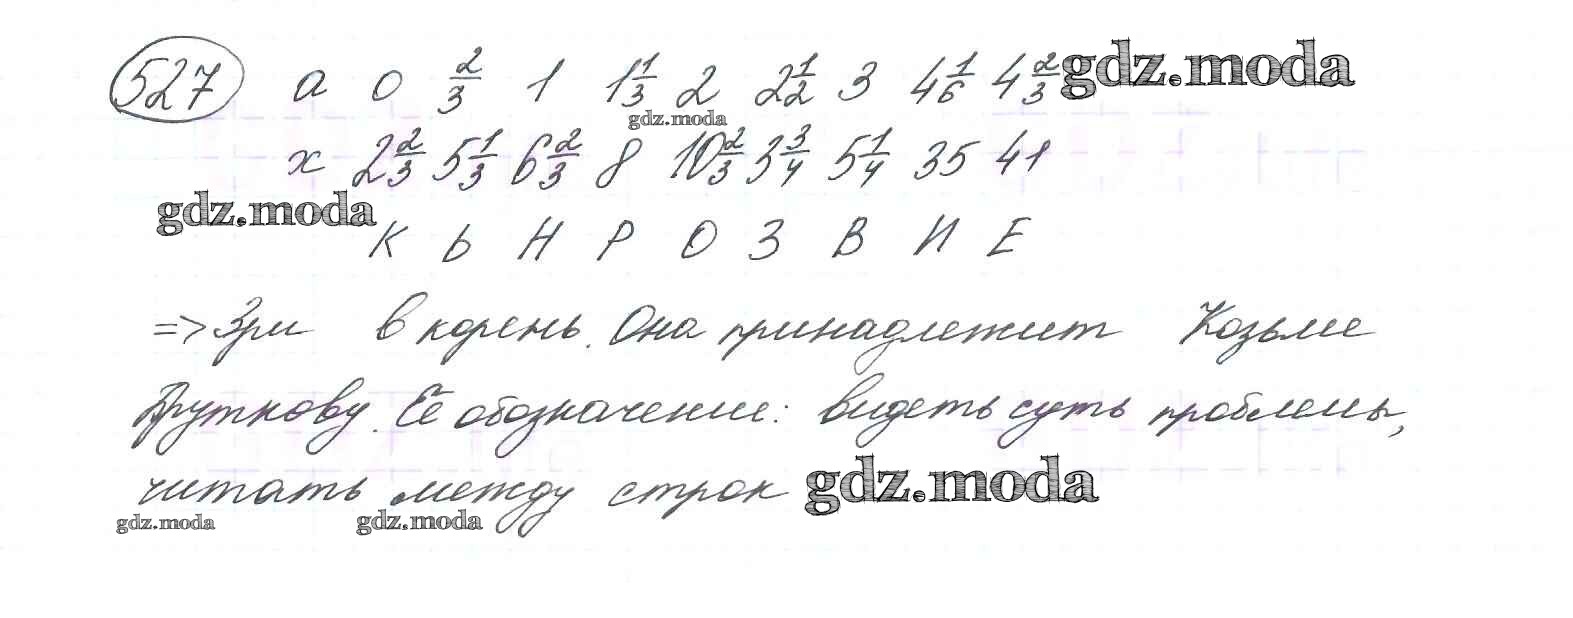 527 a 0 2/3 1 1 1/3 2 2 1/2 3 4 1/6 4 2/3 gdz.moda
gdz.moda
x 2 2/3 5 1/3 6 2/3 8 10 2/3 3 3/4 5 1/4 35 41
gdz.moda
К Ь Н Р О З В И Е
=> Зри в корень. Она принадлежит Козьме
Пруткову. Её обозначение: видеть суть проблемы,
читать между строк gdz.moda
gdz.moda gdz.moda